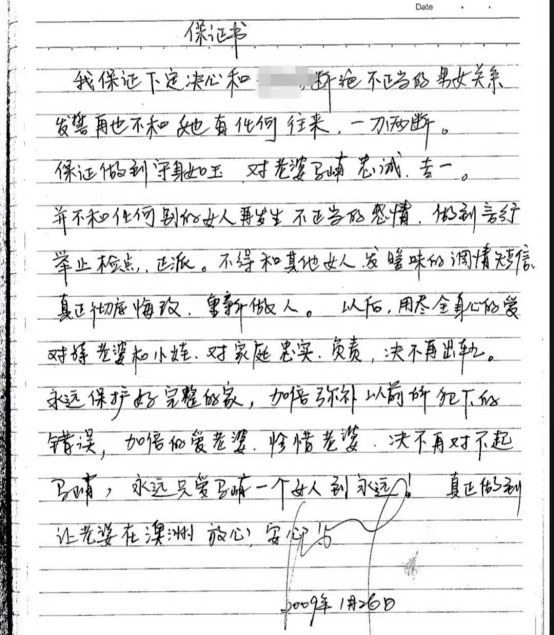 Date
保证书
我保证下定决心和 断绝不正当的男女关系
发誓再也不和她有任何往来，一刀两断。
保证做到守身如玉，对老婆马 忠诚，专一。
并不和任何别的女人再发生不正当的感情，做到言行
举止检点，正派。不得和其他女人发暧昧的调情短信。
真正彻底悔改，重新做人。以后，用尽全身心的爱
对待老婆和小娃，对家庭忠实，负责，决不再出轨。
永远保护好完整的家，加倍弥补以前所犯下的
错误，加倍的爱老婆，珍惜老婆，决不再对不起
马 ，永远只爱马 一个女人到永远！真正做到
让老婆在澳洲放心，安心！
2009年1月26日